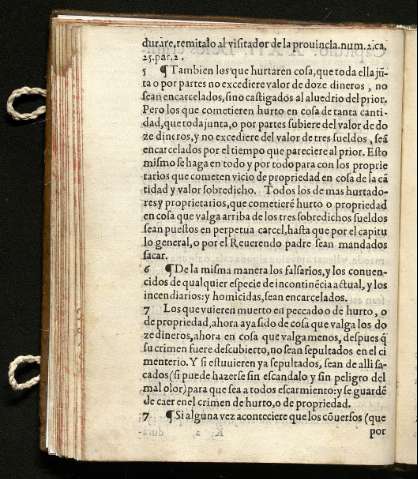 durare, remitalo al visitador de la prouincia. num. 2. ca.
25. par. 2.
5 ¶ Tambien los que hurtaren cosa, que toda ella jũ
ta o por partes no excediere valor de doze dineros, no
sean encarcelados, sino castigados al aluedrio del prior.
Pero los que cometieren hurto en cosa de tanta canti-
dad, que toda junta, o por partes subiere del valor de do
ze dineros, y no excediere del valor de tres sueldos, seã
encarcelados por el tiempo que pareciere al prior. Esto
mismo se haga en todo y por todo para con los proprie
tarios que cometen vicio de propriedad en cosa de la cã
tidad y valor sobredicho. Todos los de mas hurtado-
res y proprietarios, que cometierẽ hurto o propriedad
en cosa que valga arriba de los tres sobredichos sueldos
sean puestos en perpetua carcel, hasta que por el capitu
lo general, o por el Reuerendo padre sean mandados
sacar.
6 ¶ De la misma manera los falsarios, y los conuen-
cidos de qualquier especie de incontinẽcia actual, y los
incendiarios: y homicidas, sean encarcelados.
7 Los que vuieren muerto en peccado de hurto, o
de propriedad, ahora aya sido de cosa que valga los do
ze dineros, ahora en cosa que valga menos, despues q̃
su crimen fuere descubierto, no sean sepultados en el ci
menterio. Y si estuuieren ya sepultados, sean de alli sa-
cados (si puede hazerse sin escandalo y sin peligro del
mal olor) para que sea a todos escarmiento: y se guardẽ
de caer en el crimen de hurto, o de propriedad.
7 ¶ Si alguna vez aconteciere que los cõuersos (que
por